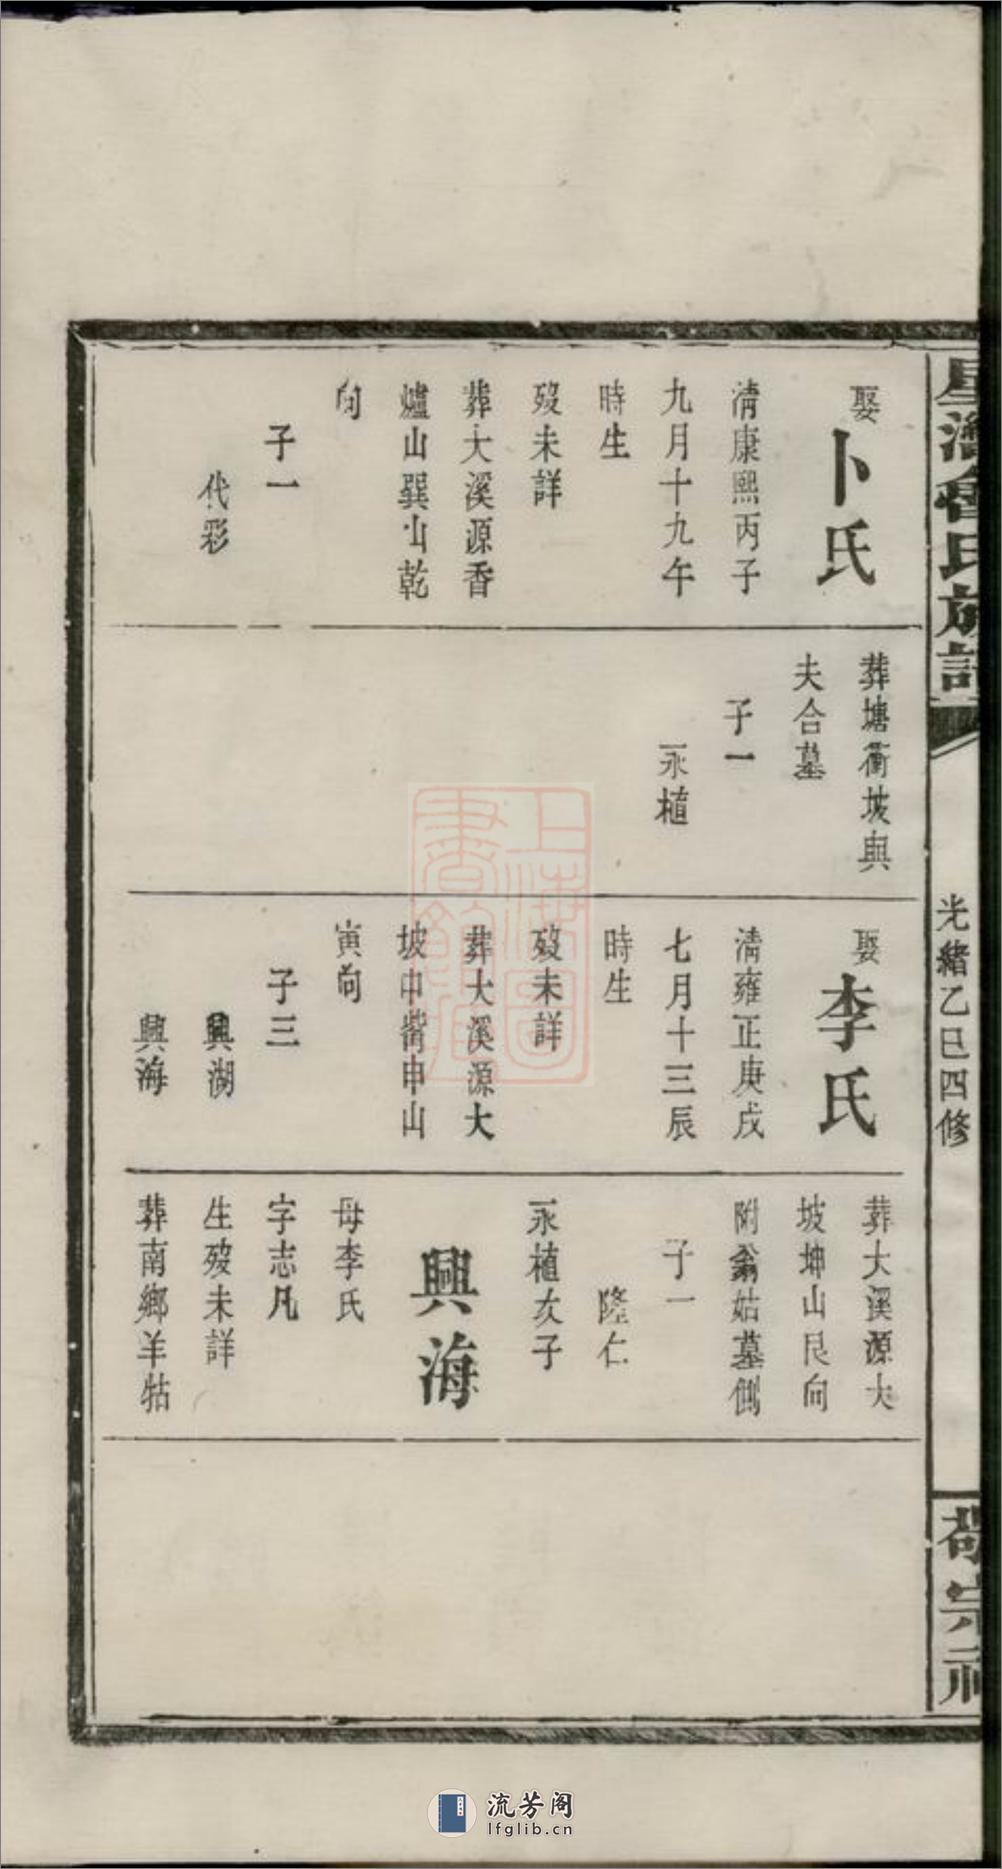 娶
卜氏
清康熙丙子
九月十九午
時生
歿未詳
葬大溪源香
爐山巽山乾
向
子一
代彩
葬塘衝坡與
夫合墓
子一
永植
娶
李氏
清雍正庚戌
七月十三辰
時生
歿未詳
葬大溪源大
坡中嘴申山
寅向
子三
興湖
興海
葬大溪源大
坡坤山艮向
附翁姑墓側
子一
隆仁
永植次子
興海
母李氏
字志凡
生歿未詳
葬南鄉羊牯
氏族譜
光緒乙巳四修
敬宗祠
上海圖書館藏
流芳阁
lfglib.cn